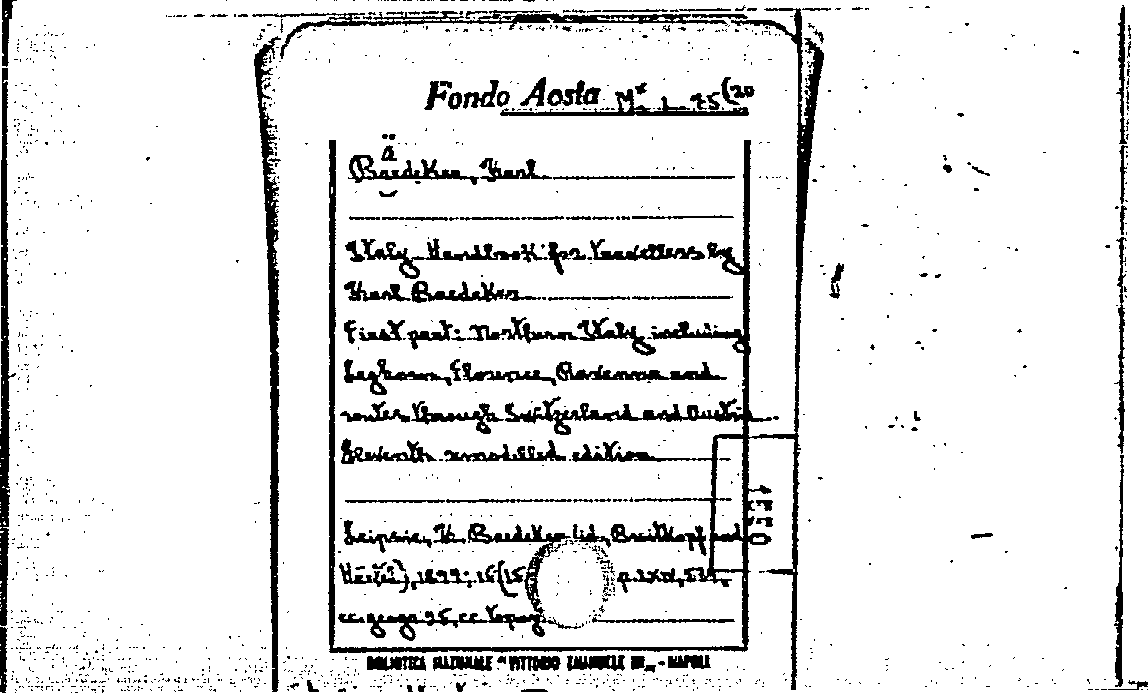 Fondo Aosta
ä
Baedeker, Karl
Italy Handbook for Travellers by
Karl Baedeker
First part: Northern Italy including
Leghorn, Florence, Ravenna and
routes through Switzerland and Austria
Eleventh remodelled edition
Leipsic, K. Baedeker (id, Breitkopf and
Härtel), 1899; 16 (15 p. LXII,
cc. geogr
BIBLIOTECA NAZIONALE "VITTORIO EMANUELE III" - NAPOLI